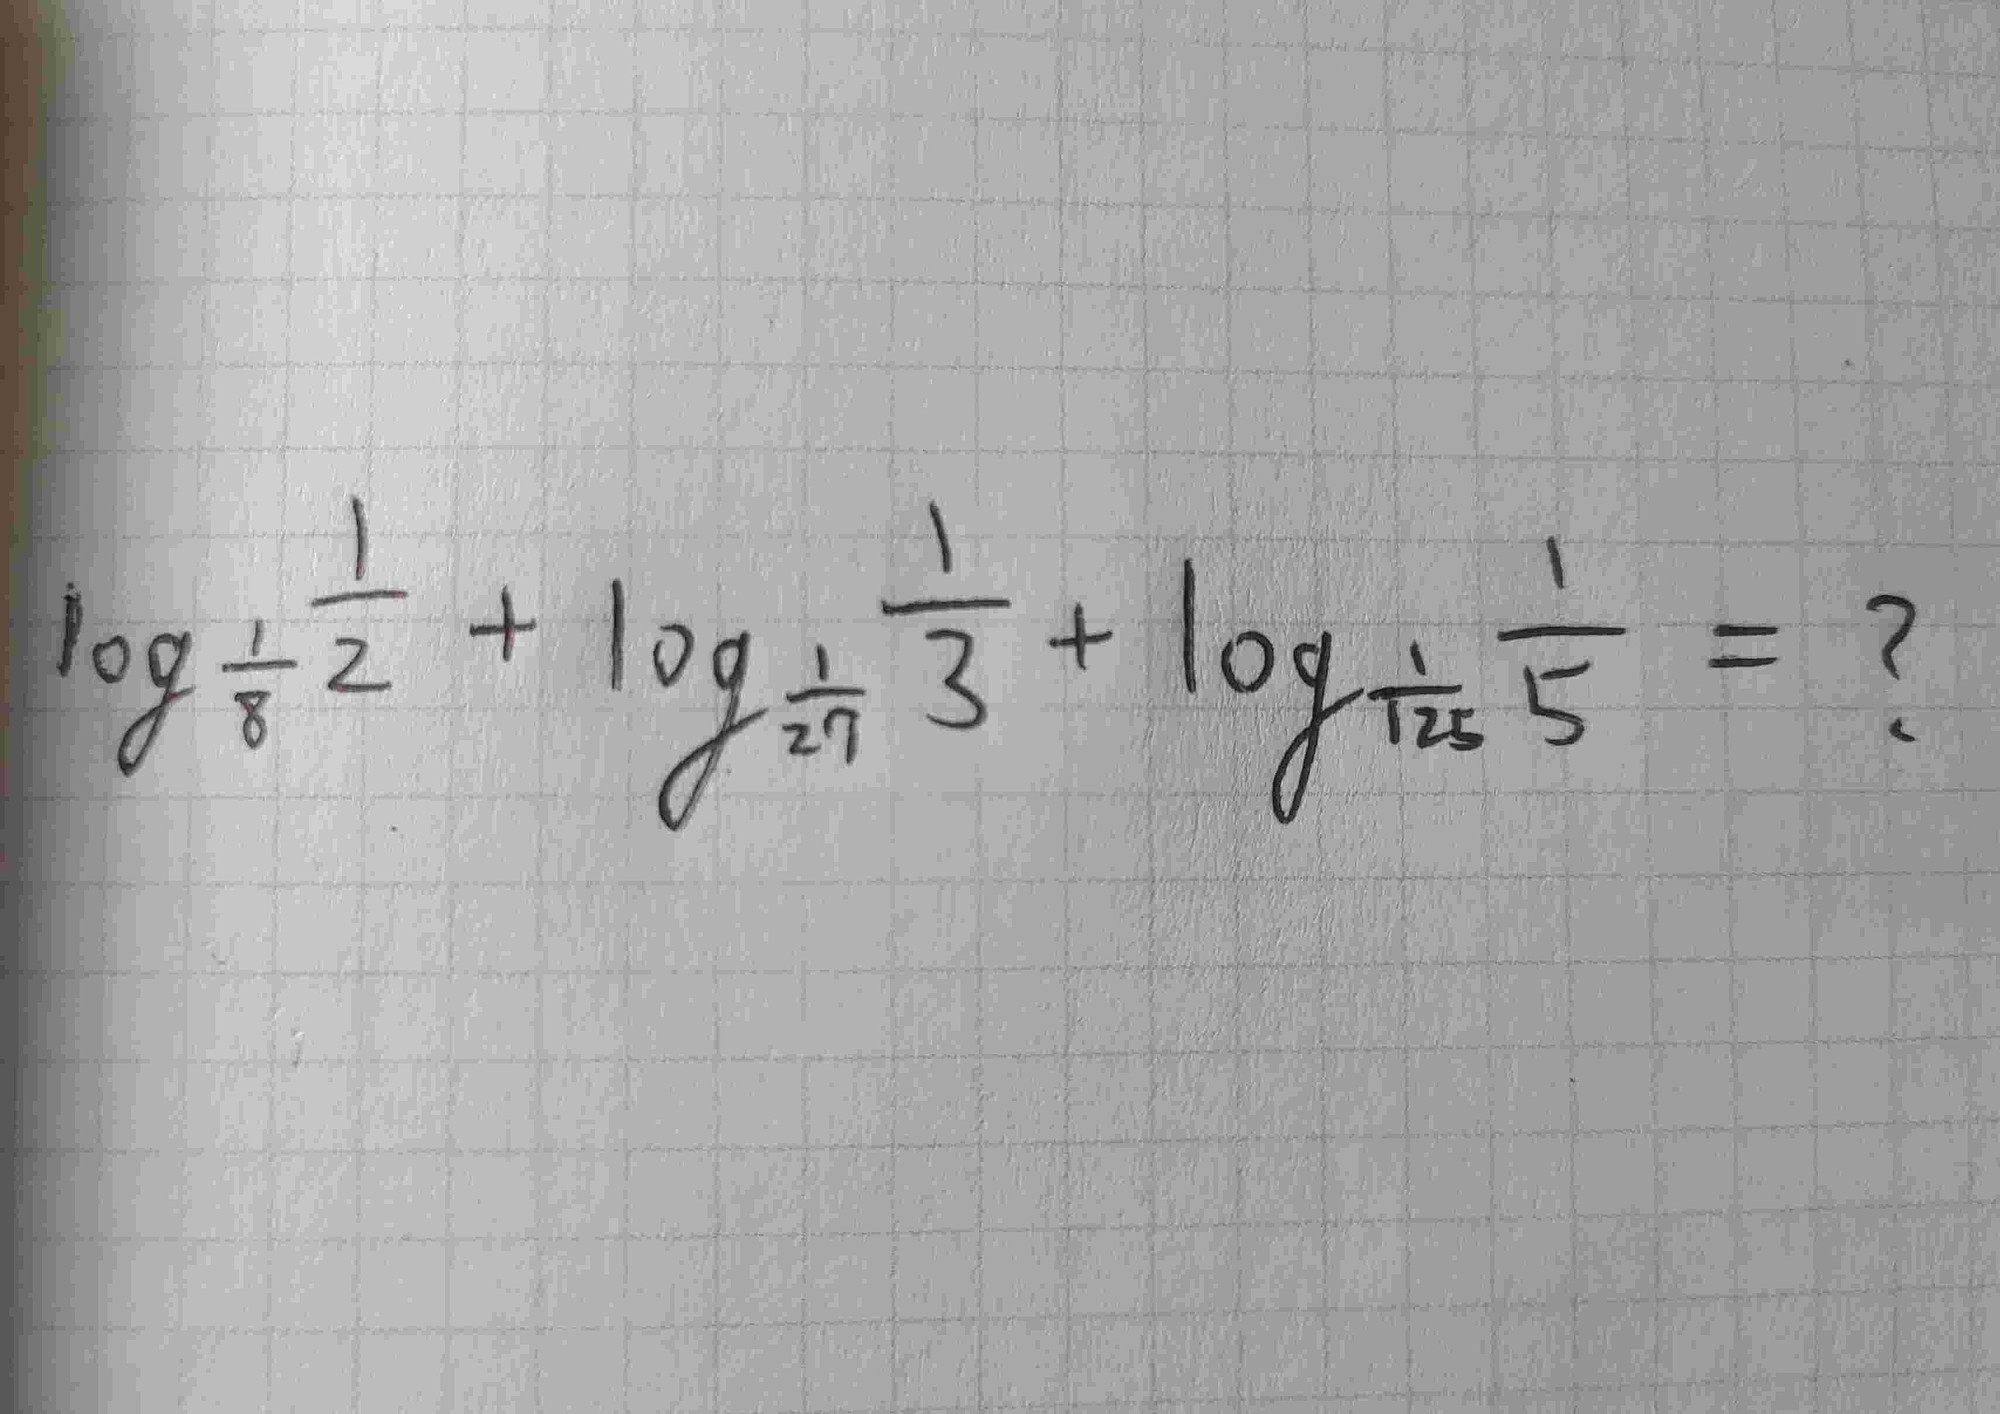 log_{\frac{1}{8}} \frac{1}{2} + log_{\frac{1}{27}} \frac{1}{3} + log_{\frac{1}{125}} \frac{1}{5} = ?